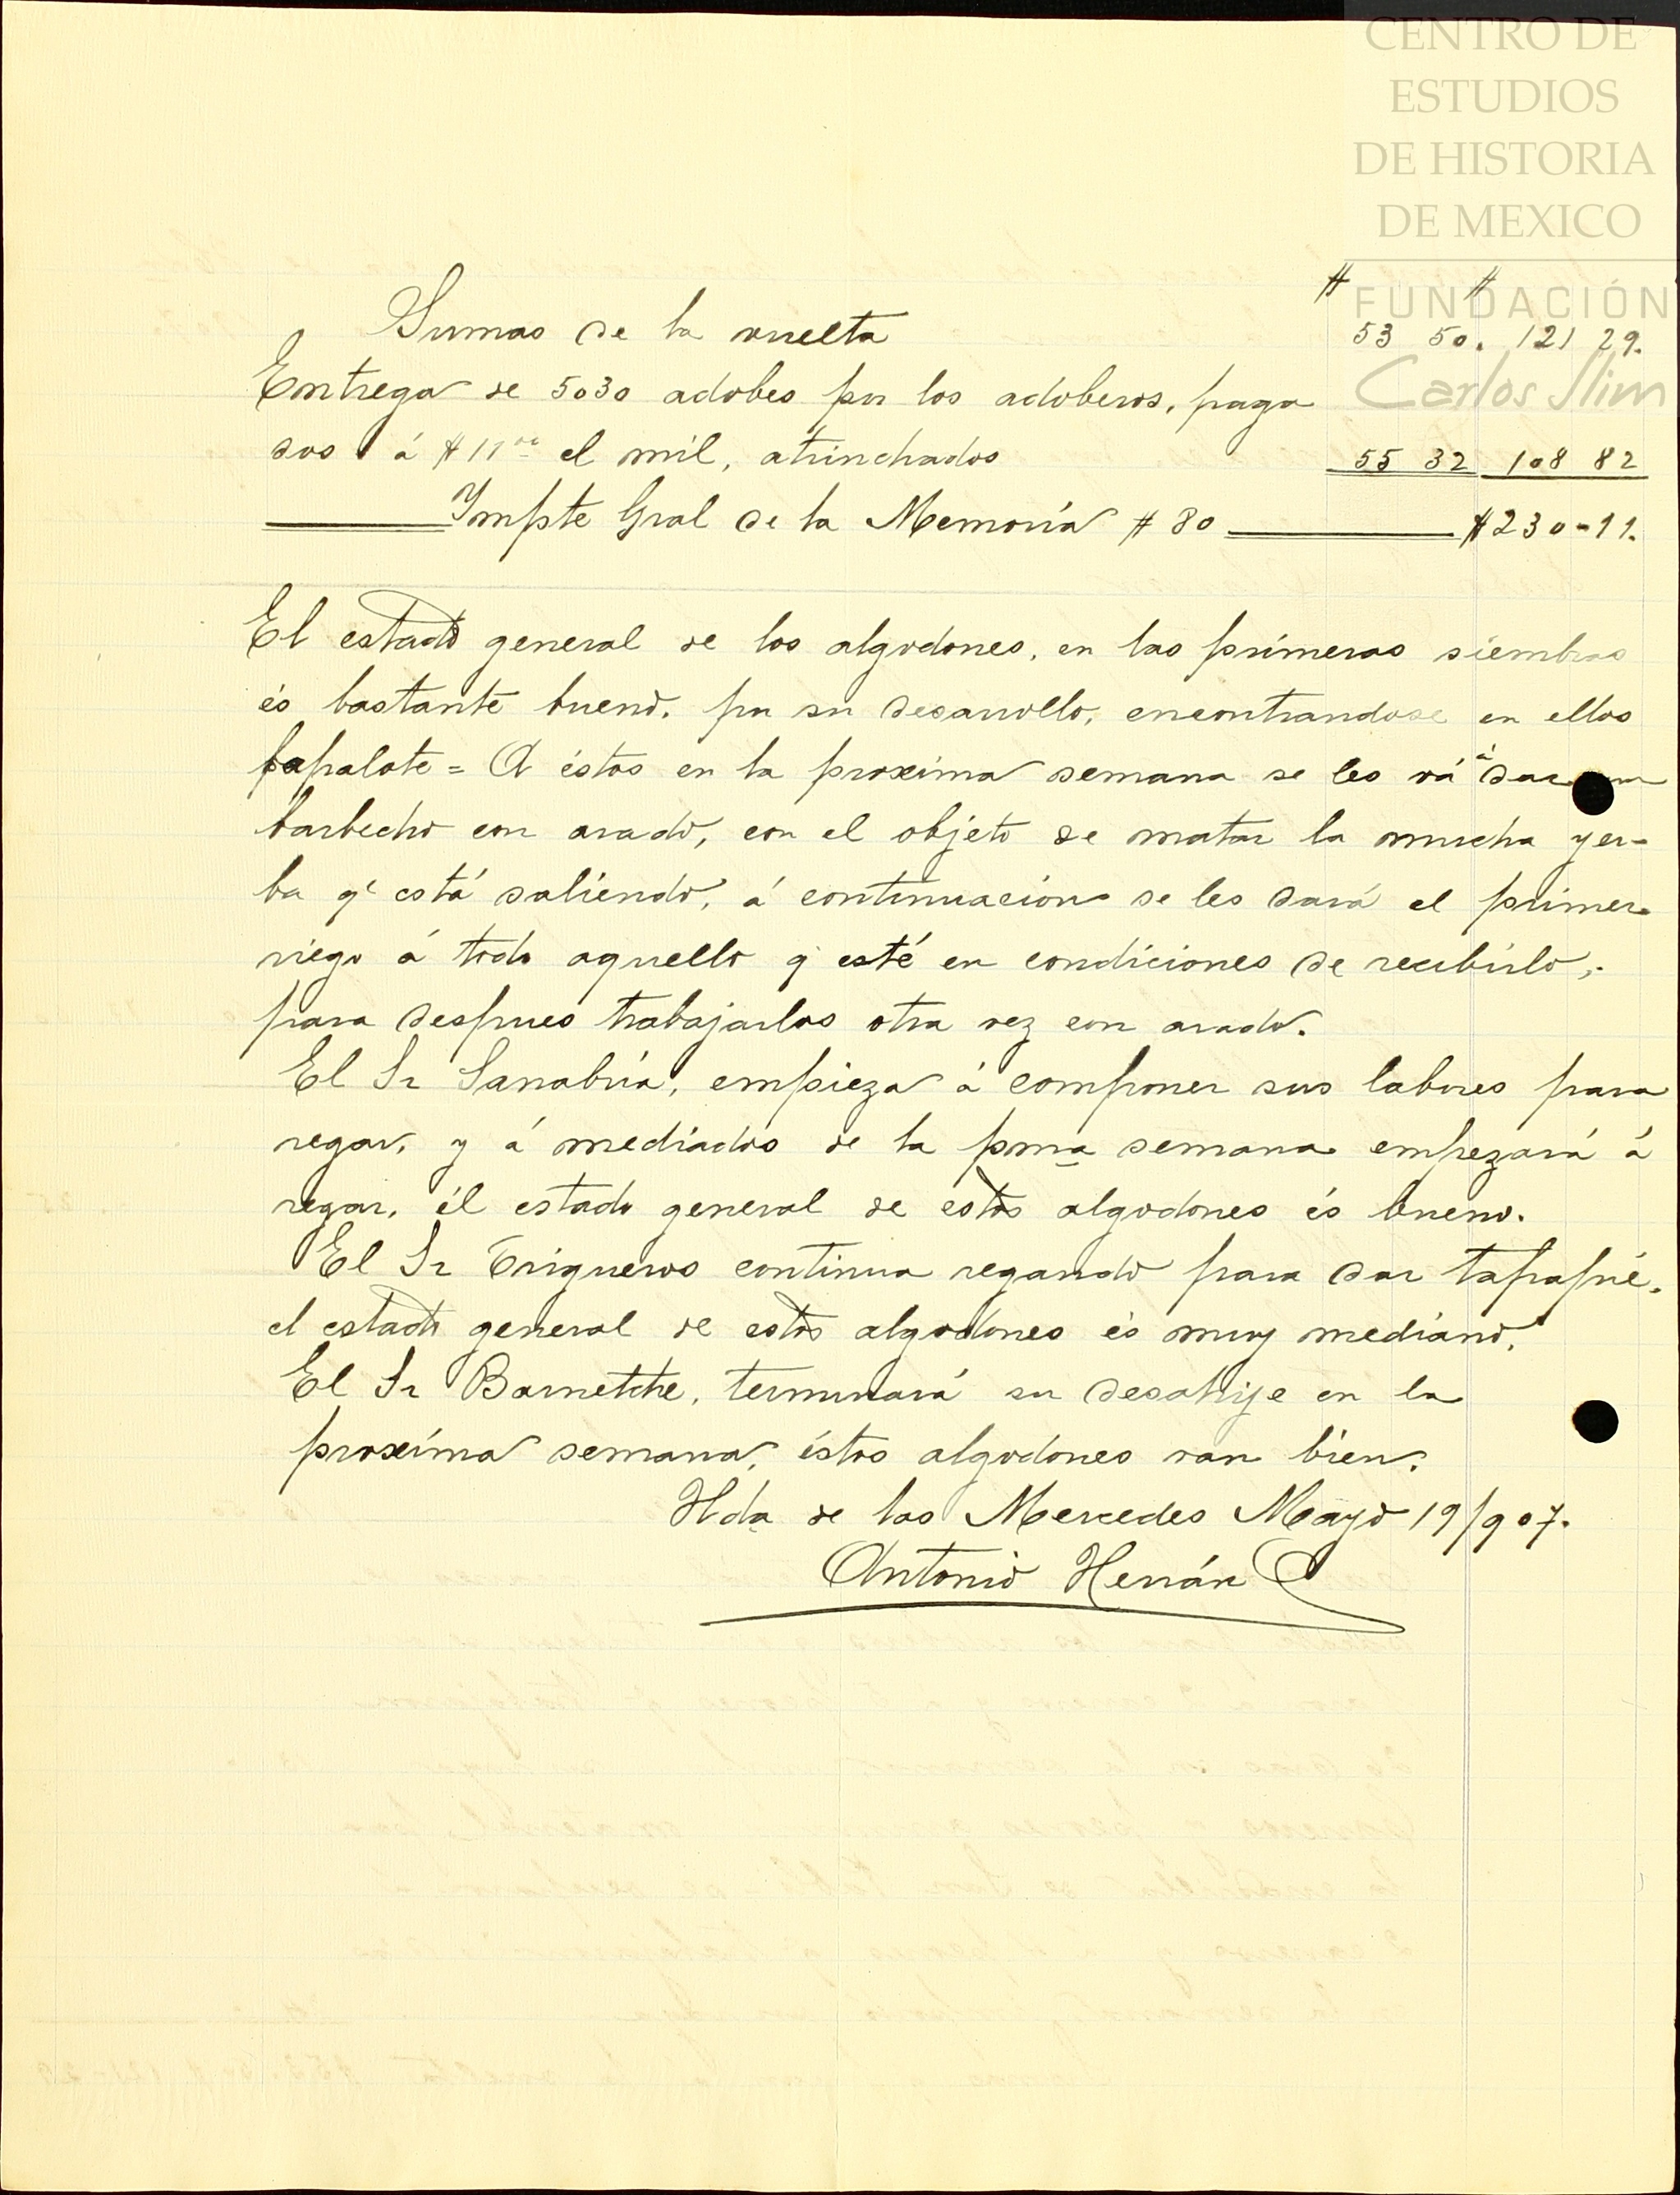 CENTRO DE
ESTUDIOS
DE HISTORIA
DE MEXICO
FUNDACIÓN
Carlos Slim
$ $
Sumas de la vuelta 53 50. 121 29.
Entrega de 5030 adobes por los adoberos, paga
dos á $11 00 el mil, atrinchados 55 32 108 82
Impte Gral de la Memoria # 80 $230-11.
El estado general de los algodones, en las primeras siembras
és bastante bueno, por su desarrollo, encontrandose en ellos
papalote = A éstos en la proxima semana se les vá á dar un
barbecho con arado, con el objeto de matar la mucha yer-
ba q' está saliendo, á continuación se les dará el primer
riego á todo aquello q' esté en condiciones de recibirlo,
para despues trabajarlos otra vez con arado.
El Sr Sanabria, empieza á componer sus labores para
regar, y á mediados de la pma semana empezará á
regar, él estado general de estos algodones és bueno.
El Sr Trigueros continua regando para dar tapapié,
el estado general de estos algodones és muy mediano.
El Sr Barnetche, terminará su desahije en la
proxima semana, éstos algodones van bien.
Hda de las Mercedes Mayo 19/907.
Antonio Herrán